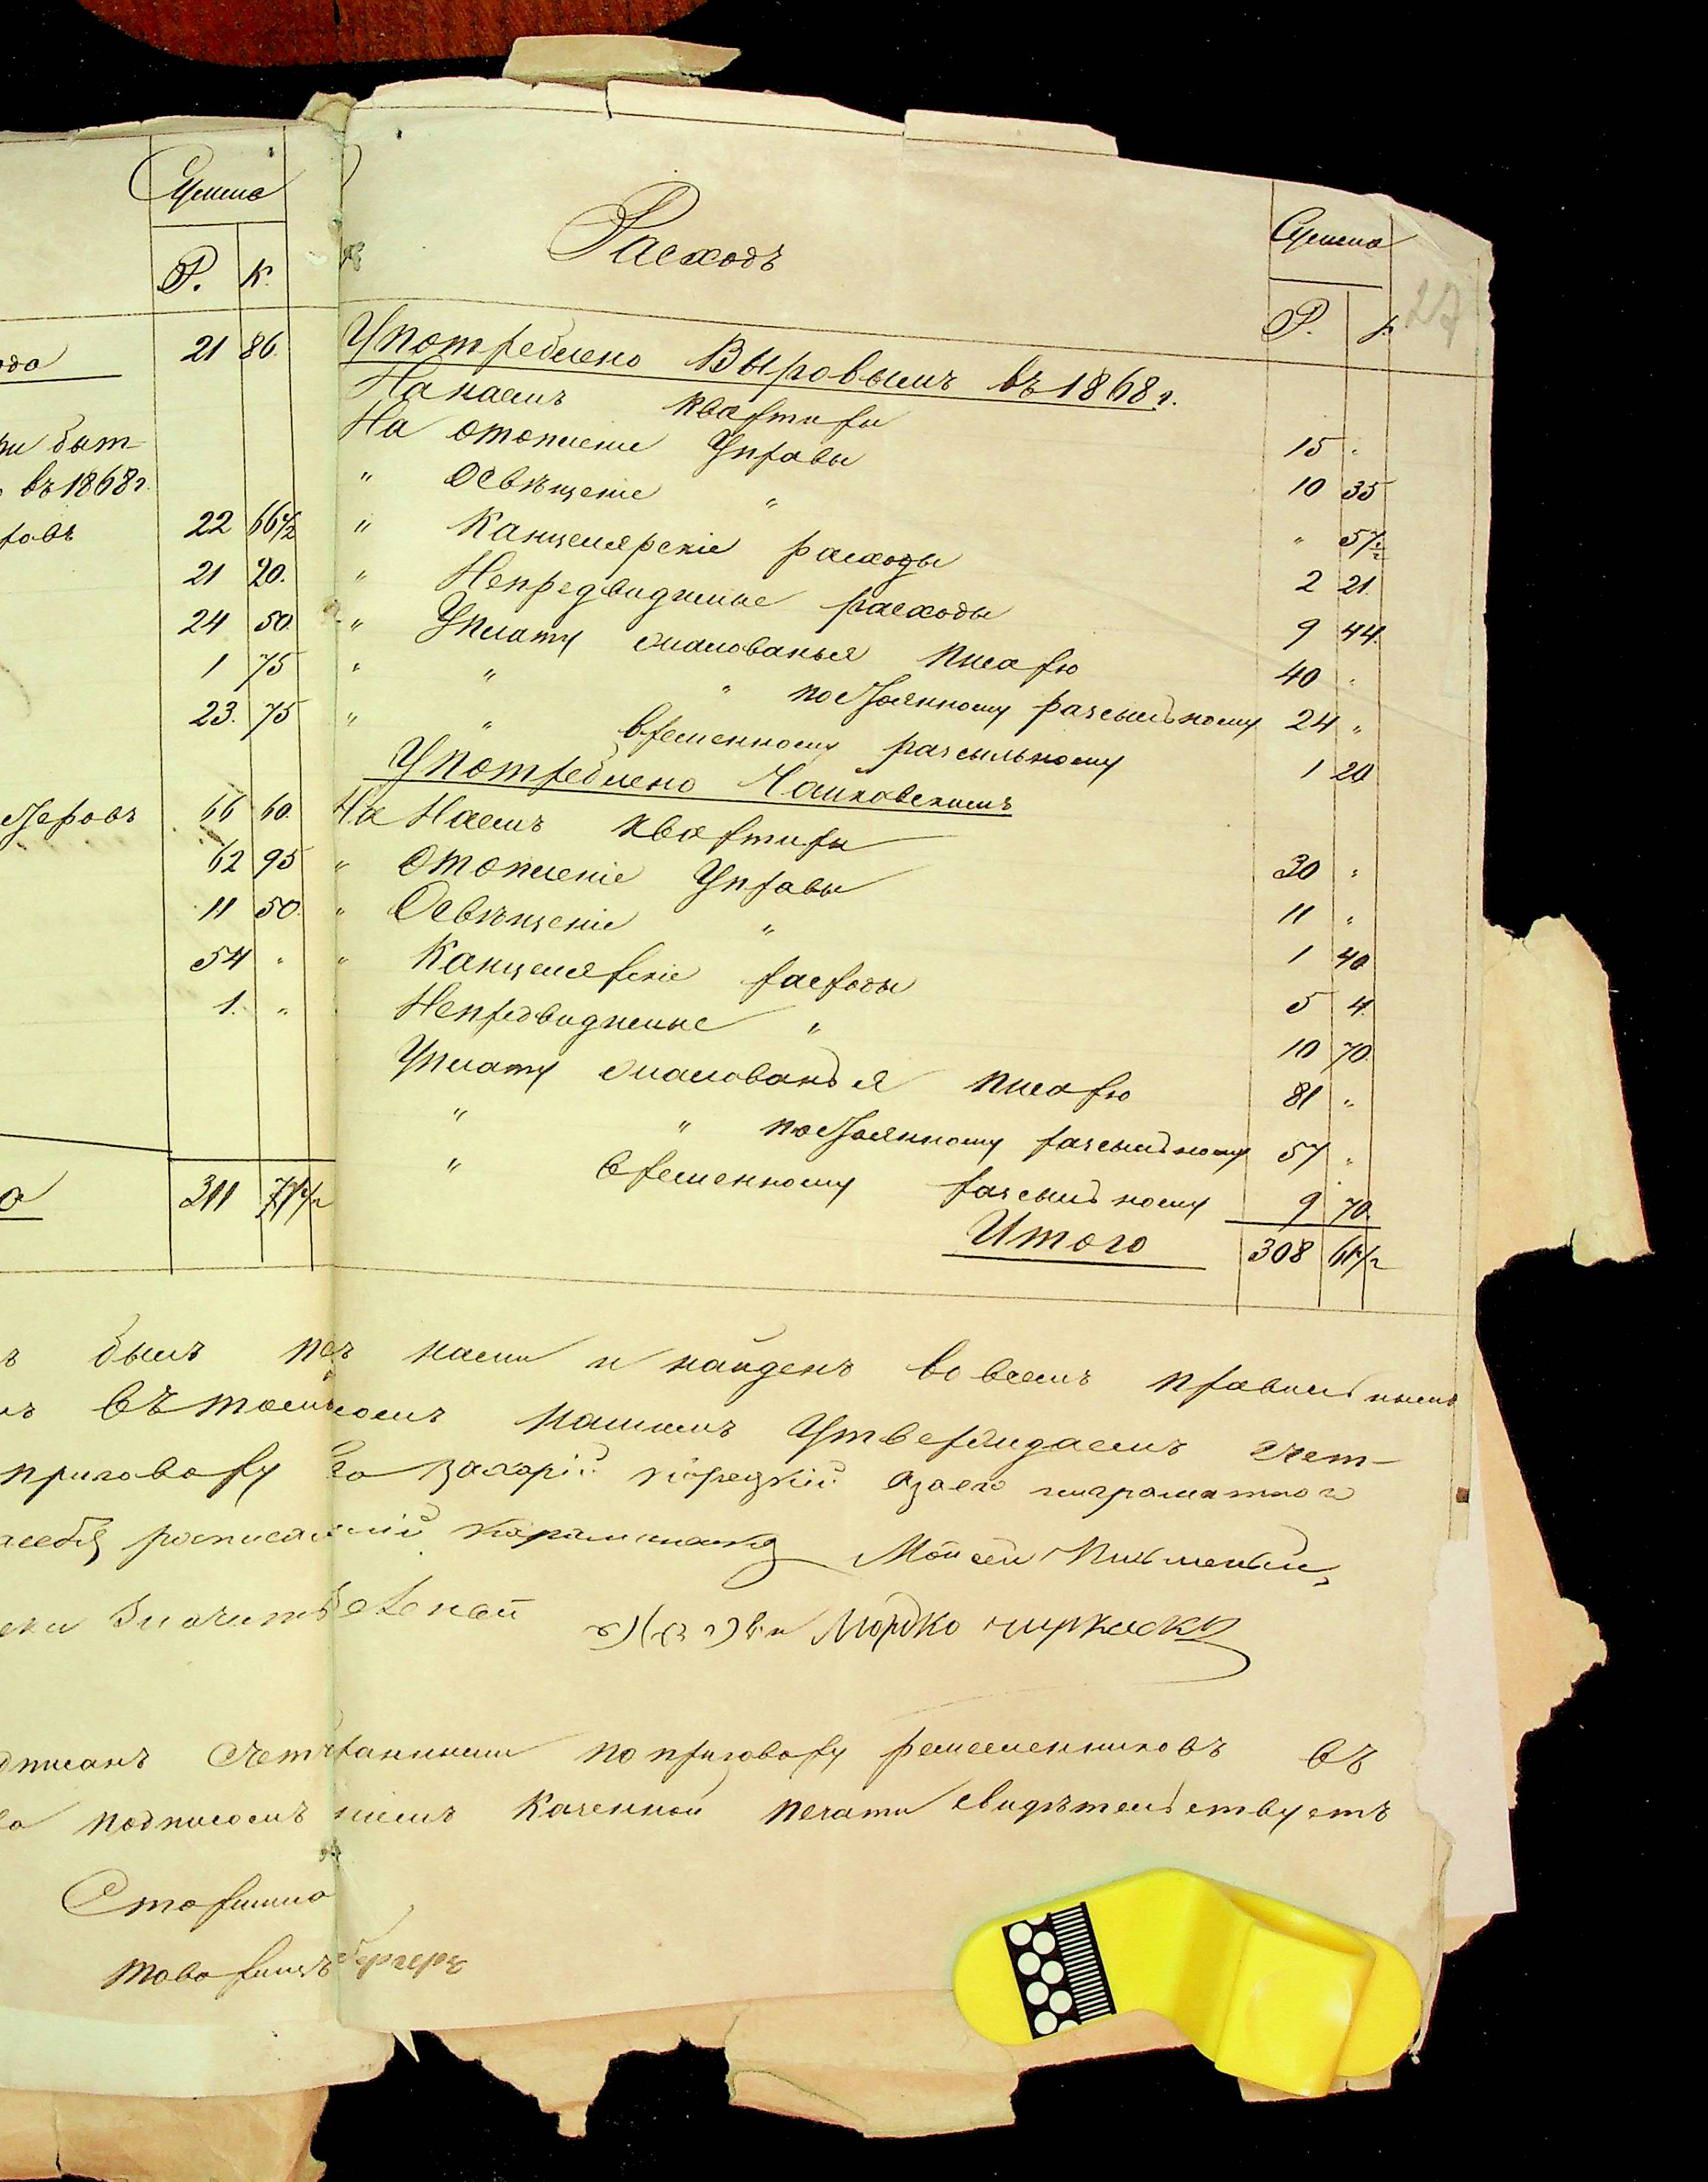 Сумма
Р. К.
21 86
ки быт-
въ 1868 г.
22 66 1/2
21 20.
24 50
1 75
23. 75
66 60.
62 95
11 50.
54 "
1. "
311 77 1/2
27
Расходъ
Сумма
Р. К.
Употреблено Выровымъ въ 1868 г.
На наемъ квартиры 15 "
На отопленіе Управы 10 35
" Освѣщеніе " " 57 1/2
" Канцелярскіе расходы 2 21.
" Непредвидимые расходы 9 44.
" Уплату жалованья писарю 40 "
" " " постоянному разсыльному 24 "
" " временному разсыльному 1 20
Употреблено Чайковскимъ
На Наемъ квартиры 30 "
" Отопленіе Управы 11 "
" Освѣщеніе " 1 40
" Канцелярскіе расходы 5 4.
Непредвидимые " 10 70.
Уплату жалованья писарю 81 "
" " постоянному разсыльному 57 "
" временному разсыльному 9 70.
Итого 308 61 1/2
былъ нами и найденъ во всемъ правильнымъ
въ томъ нашимъ Утверждаемъ счет-
приговору Захарій азаего неграмотного
себя Мойсей Письменый
Мордко
Счетчиками по приговору ремесленниковъ въ
подписомъ казенной печати свидѣтельствуетъ
Старшина
товарищъ